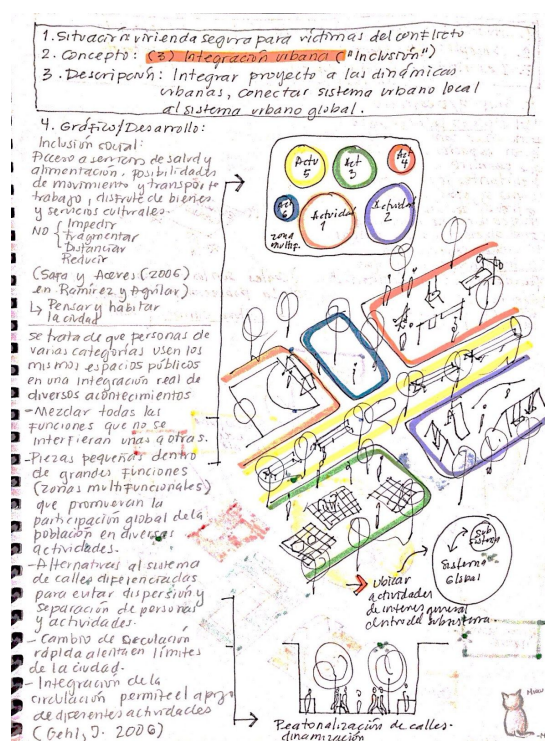 1. Situación: vivienda segura para víctimas del conflicto
2. Concepto: (3) Integración urbana ("Inclusión")
3. Descripción: Integrar proyecto a las dinámicas
urbanas, conectar sistema urbano local
al sistema urbano global.
4. Gráfico/Desarrollo:
Inclusión social:
Acceso a servicios de salud y
alimentación, posibilidades
de movimiento y transporte
trabajo, disfrute de bienes
y servicios culturales.
NO { Impedir
Fragmentar
Distanciar
Reducir
(Sara y Aceves (2006)
en Ramírez y Aguilar).
↳ Pensar y habitar
la ciudad
Se trata de que personas de
varias categorías usen los
mismos espacios públicos
en una integración real de
diversos acontecimientos
- Mezclar todas las
funciones que no se
interfieran unas a otras.
- Piezas pequeñas dentro
de grandes funciones
(zonas multifuncionales)
que promuevan la
participación global de la
población en diversas
actividades.
- Alternativas al sistema
de calles diferenciadas
para evitar dispersión y
separación de personas
y actividades.
- Cambio de circulación
rápida a lenta en límites
de la ciudad.
- Integración de la
circulación permite el apoyo
de diferentes actividades
(Gehl, J. 2006)
Activ 5
Act 3
Act 4
Act 6
Actividad 1
Actividad 2
zona
multif.
Sub
sistema
Sistema
Global
Ubicar
actividades
de interés general
dentro del subsistema
Peatonalización de calles-
dinamización